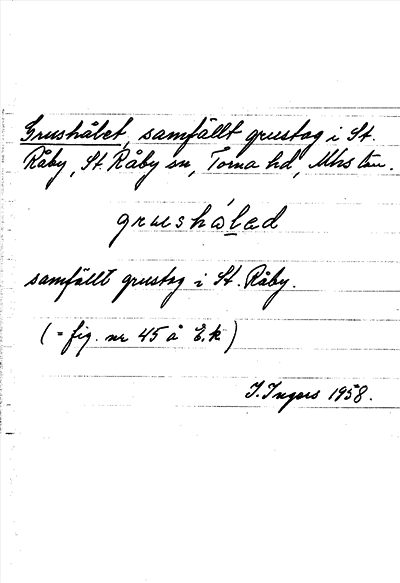 Grushålet, samfällt grustag i St.
Råby, St. Råby sn, Torna hd, Mhs län.
grushálad
samfällt grustag i St. Råby.
(= fig. nr 45 å E.k)
I. Ingers 1958.